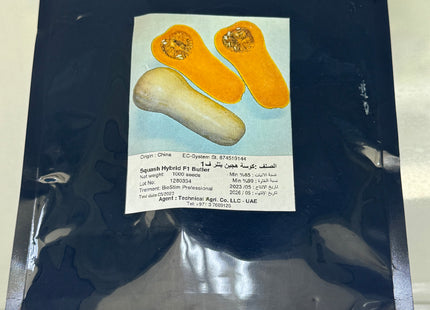 Origin : China EC-System St. 874519144
الصنف :كوسة هجين بتلر ف1
Squash Hybrid F1 Butler
Net weight: 1000 seeds
Min %85 : نسبة الانبات
Lot No. 1280354
Min %99 : نسبة النقاوة
Tretment: BioStim Professional
تاريخ الانتاج : 05/ 2023
Test date 05/2023
تاريخ الانتهاء : 05 / 2026
Agent : Technical Agri. Co. LLC - UAE
Tel: +971 3 7609125